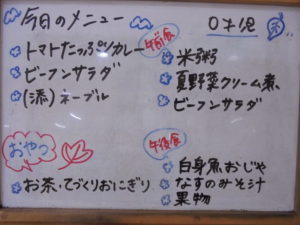 今日のメニュー
トマトたっぷりカレー
ビーフンサラダ
(添)ネーブル
おやつ
お茶・てづくりおにぎり
0才児
午前食
米粥
夏野菜クリーム煮
ビーフンサラダ
午後食
白身魚おじや
なすのみそ汁
果物